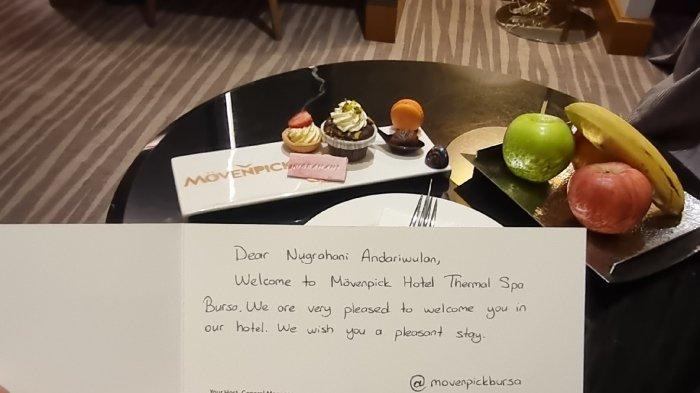 MÖVENPICK
Dear Nugrahani Andariwulan,
Welcome to Mövenpick Hotel Thermal Spa
Bursa. We are very pleased to welcome you in
our hotel. We wish you a pleasant stay.
@movenpickbursa
Your Host, General